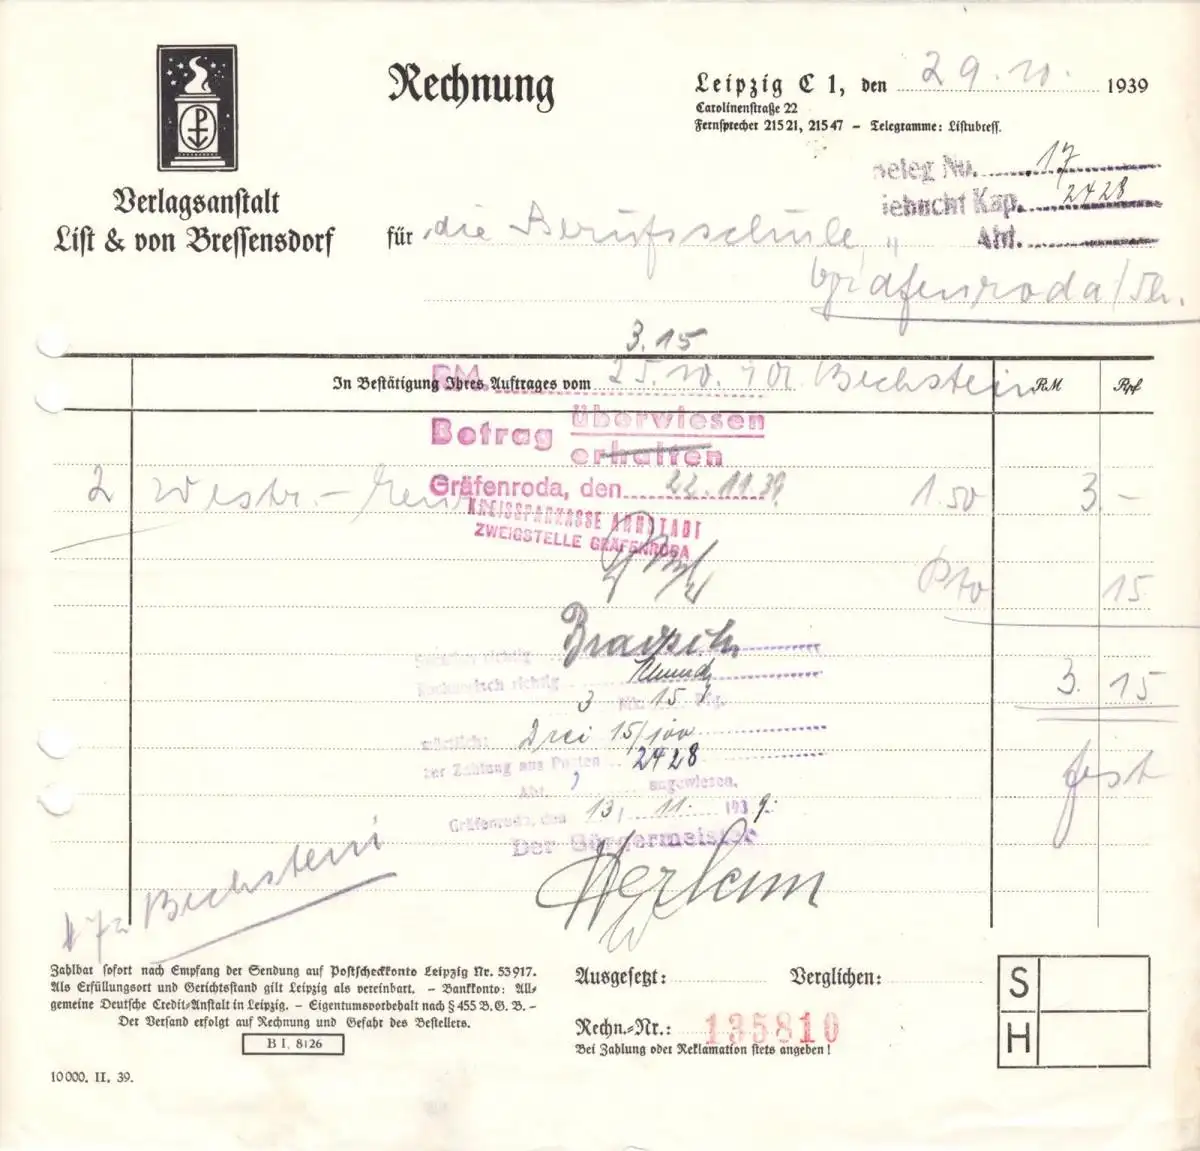 Rechnung
Leipzig C 1, den 29.10. 1939
Carolinenstraße 22
Fernsprecher 215 21, 215 47 – Telegramme: Listubress.
Verlagsanstalt
List & von Bressensdorf
Beleg No. 17
Kap. 2428
Abt.
für die Berufsschule
Gräfenroda/Th.
3.15
In Bestätigung Ihres Auftrages vom 25.10. Bechstein
RM Rpf
RM.
Betrag überwiesen
erhalten
Gräfenroda, den 22.11.39
KREISSPARKASSE ARNSTADT
ZWEIGSTELLE GRÄFENRODA
2 1.50 3.–
Pto 15
richtig
Rechnerisch richtig
3 Mk. 15 Pfg.
3. 15
wörtlich: Drei 15/100
zur Zahlung aus Posten 2428
Abt. angewiesen.
fest
Gräfenroda, den 13. 11. 1939.
Der Bürgermeister
Bechstein
Zahlbar sofort nach Empfang der Sendung auf Postscheckkonto Leipzig Nr. 53917.
Als Erfüllungsort und Gerichtsstand gilt Leipzig als vereinbart. – Bankkonto: All-
gemeine Deutsche Credit-Anstalt in Leipzig. – Eigentumsvorbehalt nach § 455 B. G. B. –
Der Versand erfolgt auf Rechnung und Gefahr des Bestellers.
B I, 8126
10000. II. 39.
Ausgesetzt: Verglichen:
Rechn.-Nr.: 135810
Bei Zahlung oder Reklamation stets angeben!
S
H